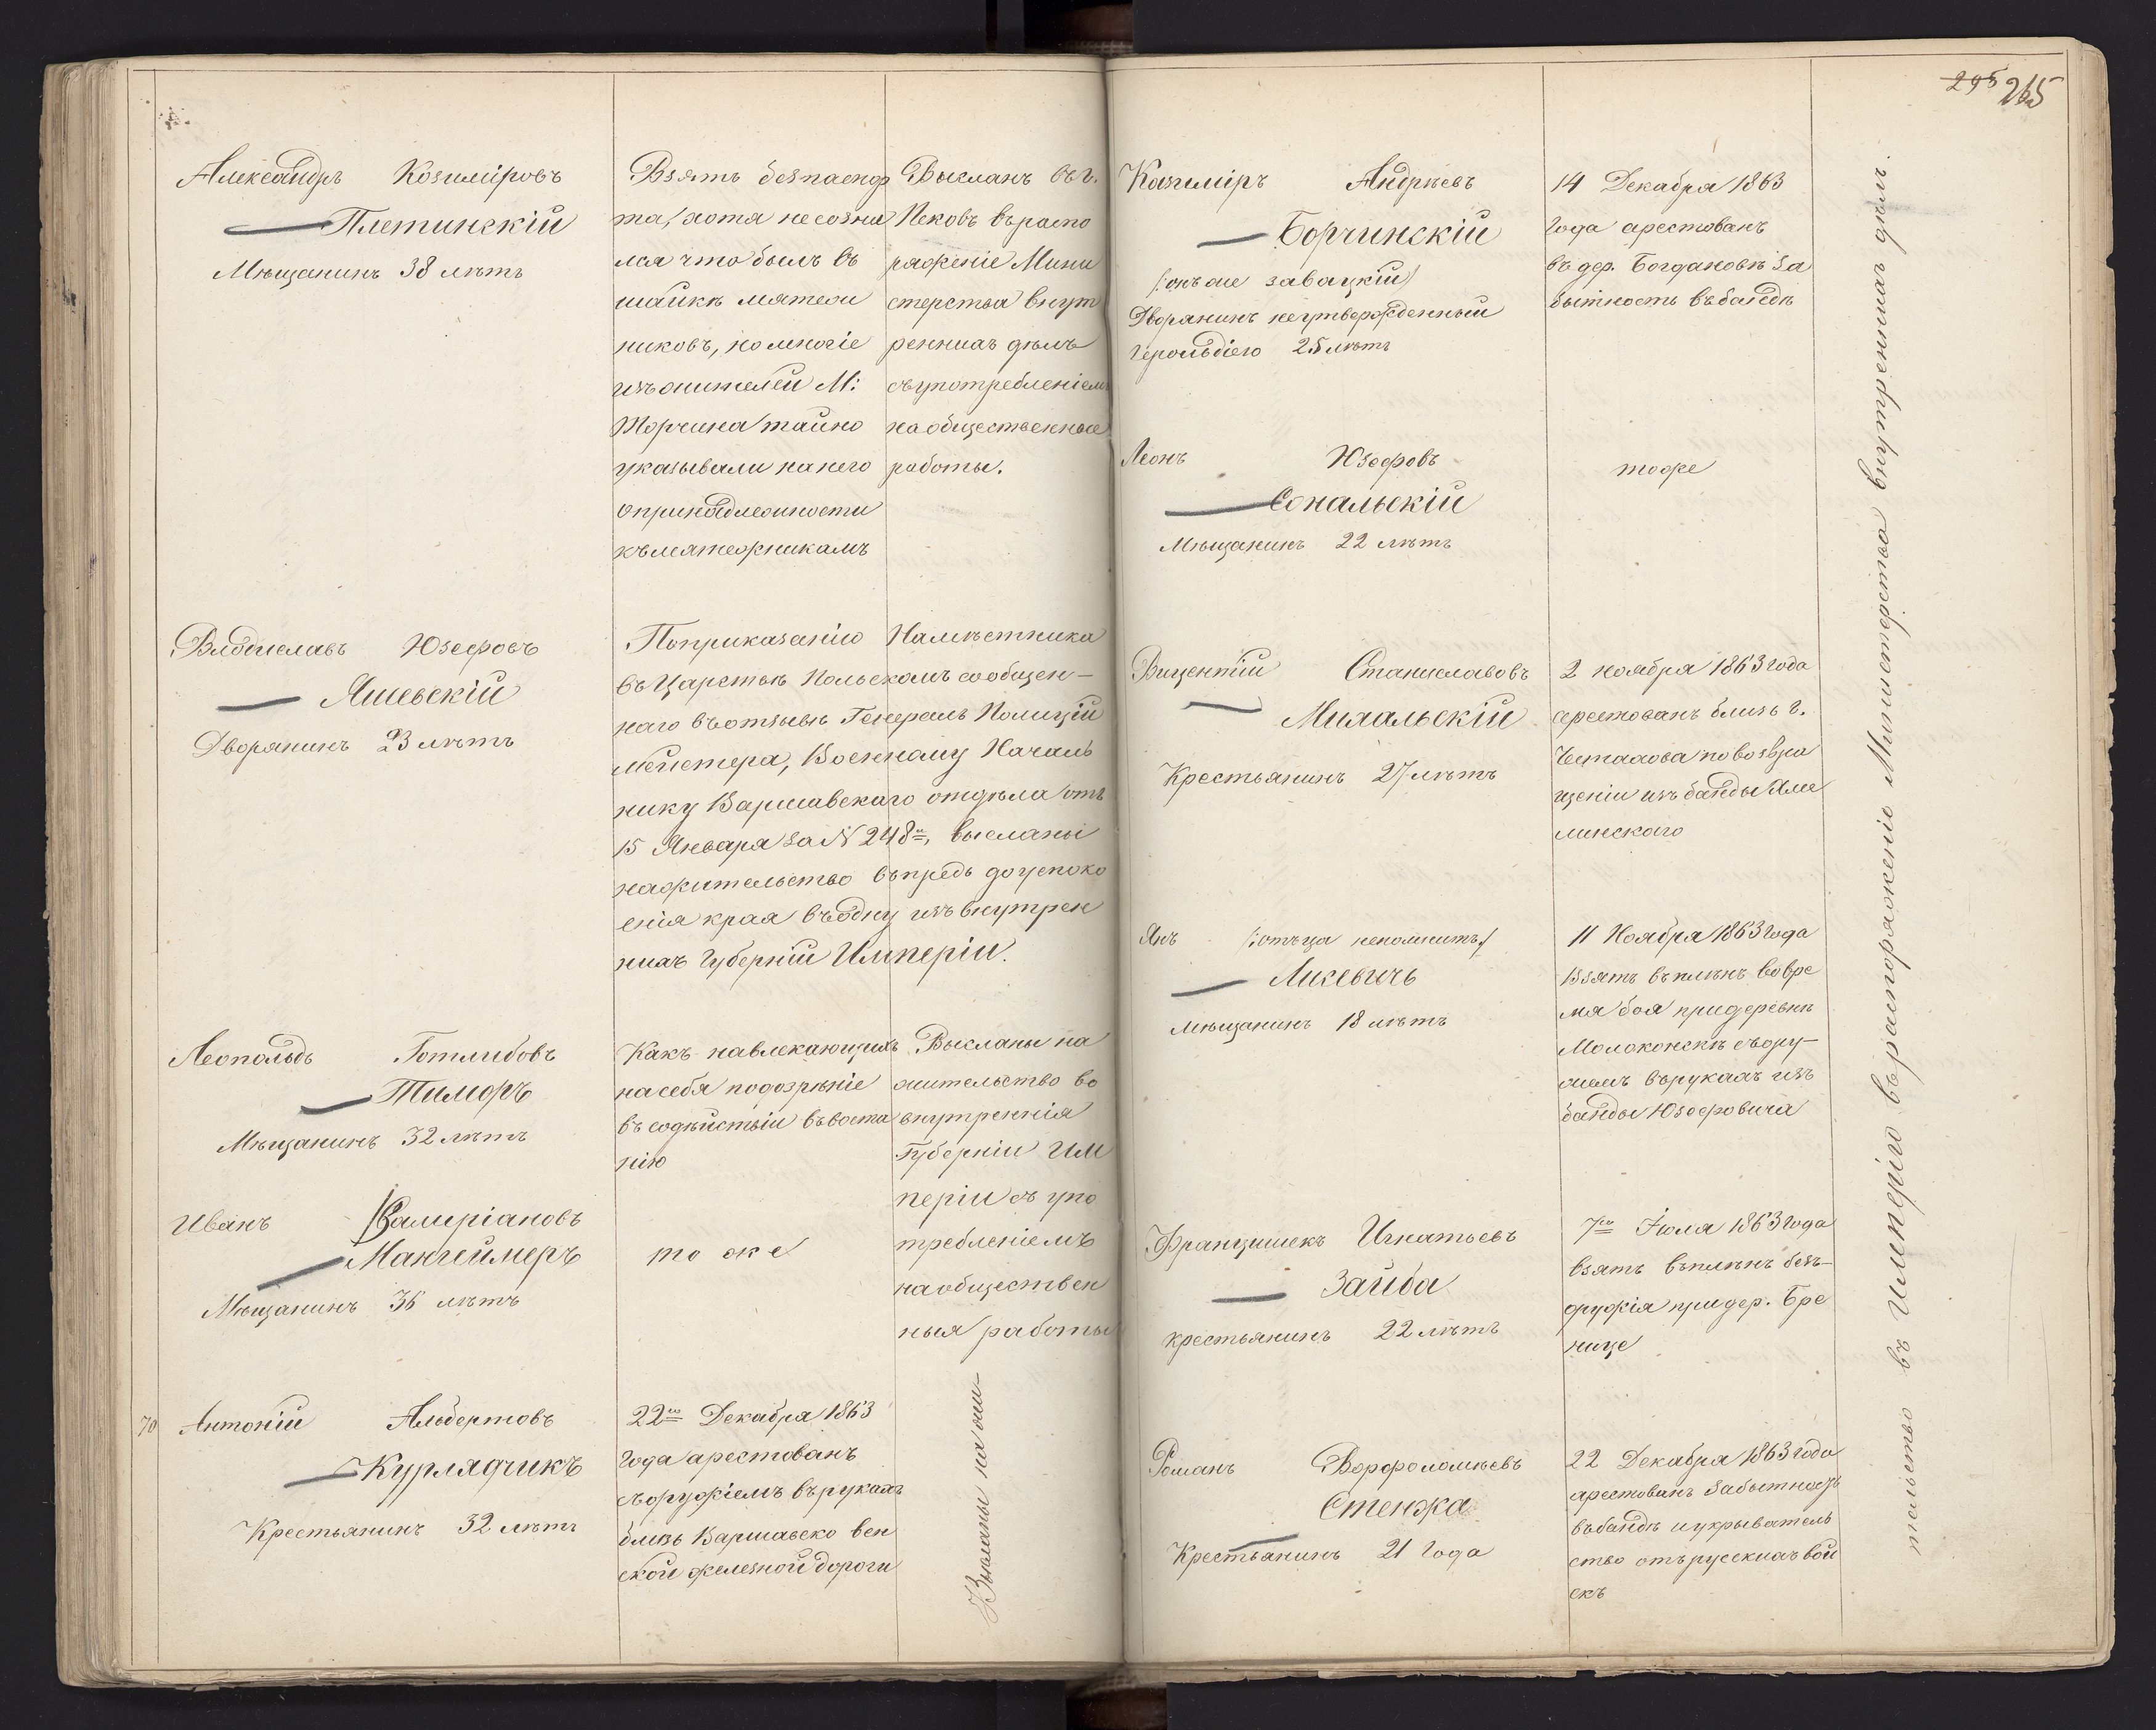 295 265
Александръ Козиміровъ
Плетинскій
Мѣщанинъ 38 лѣтъ
Взятъ безпаспор
та, хотя несозна
лся что былъ въ
шайкѣ мятеж
никовъ, но многіе
изъ жителей М:
Торчина тайно
указывали на него
о принадлежности
къ мятежникамъ
Высланъ въ г.
Псковъ въ распо
ряженіе Мини
стерства внут
реннихъ дѣлъ
съ употребленіемъ
на общественные
работы.
Владиславъ Юзефовъ
Яшевскій
Дворянинъ 23 лѣтъ
По приказанію Намѣстника
въ Царствѣ Польскомъ сообщен-
наго въ отзывѣ Генералъ Полицій
мейстера, Военному Началь
нику Варшавскаго отдѣла отъ
15 Января за N 248, высланы
на жительство впредь до успоко
енія края въ одну изъ внутрен
нихъ Губерній Имперіи.
Леопольдъ Готлибовъ
Тиморъ
Мѣщанинъ 32 лѣтъ
Какъ навлекающихъ
на себя подозрѣніе
въ содѣйствіи въ воста
нію
Высланы на
жительство во
внутреннія
Губерніи Им
періи съ упо
требленіемъ
на обществен
ныя работы
Иванъ Валиріановъ
Мангеймеръ
Мѣщанинъ 36 лѣтъ
то же
70 Антоній Альбертовъ
Курлядчикъ
Крестьянинъ 32 лѣтъ
22го Декабря 1863
года арестованъ
съ оружіемъ въ рукахъ
близь Варшавско вен
ской железной дороги
Высланы на жи-
Казиміръ Андреевъ
Борчинскій
(онъ же завацкій)
Дворянинъ неутвержденный
Герольдіею 25 лѣтъ
14 Декабря 1863
года арестованъ
въ дер. Богдановѣ за
бытность въ бандѣ
Леонъ Юзефовъ
Сокальскій
Мѣщанинъ 22 лѣтъ
тоже
Вицентій Станиславовъ
Михальскій
Крестьянинъ 27 лѣтъ
2 ноября 1863 года
арестованъ близь г.
Честахова по возвра
щеніи изъ банды Хме
линскаго
Янъ (:отъца непомнитъ:)
Ликевичъ
Мѣщанинъ 18 лѣтъ
11 Ноября 1863 года
Взятъ въ плѣнъ во вре
мя боя при деревнѣ
Молоконскѣ съ ору-
жіемъ въ рукахъ изъ
банды Юзефовича
Францишекъ Игнатьевъ
Зайда
крестьянинъ 22 лѣтъ
7го Іюля 1863 года
взятъ въ плѣнъ безъ-
оружія при дер. Бре
нице
Романъ Ворфоломѣевъ
Стенжа
Крестьянинъ 21 года
22 Декабря 1863 года
арестованъ за бытность
въ бандѣ и укрыватель
ство отъ русскихъ вой
скъ
тельство въ имперію въ распоряженіе Министерства внутреннихъ дѣлъ.